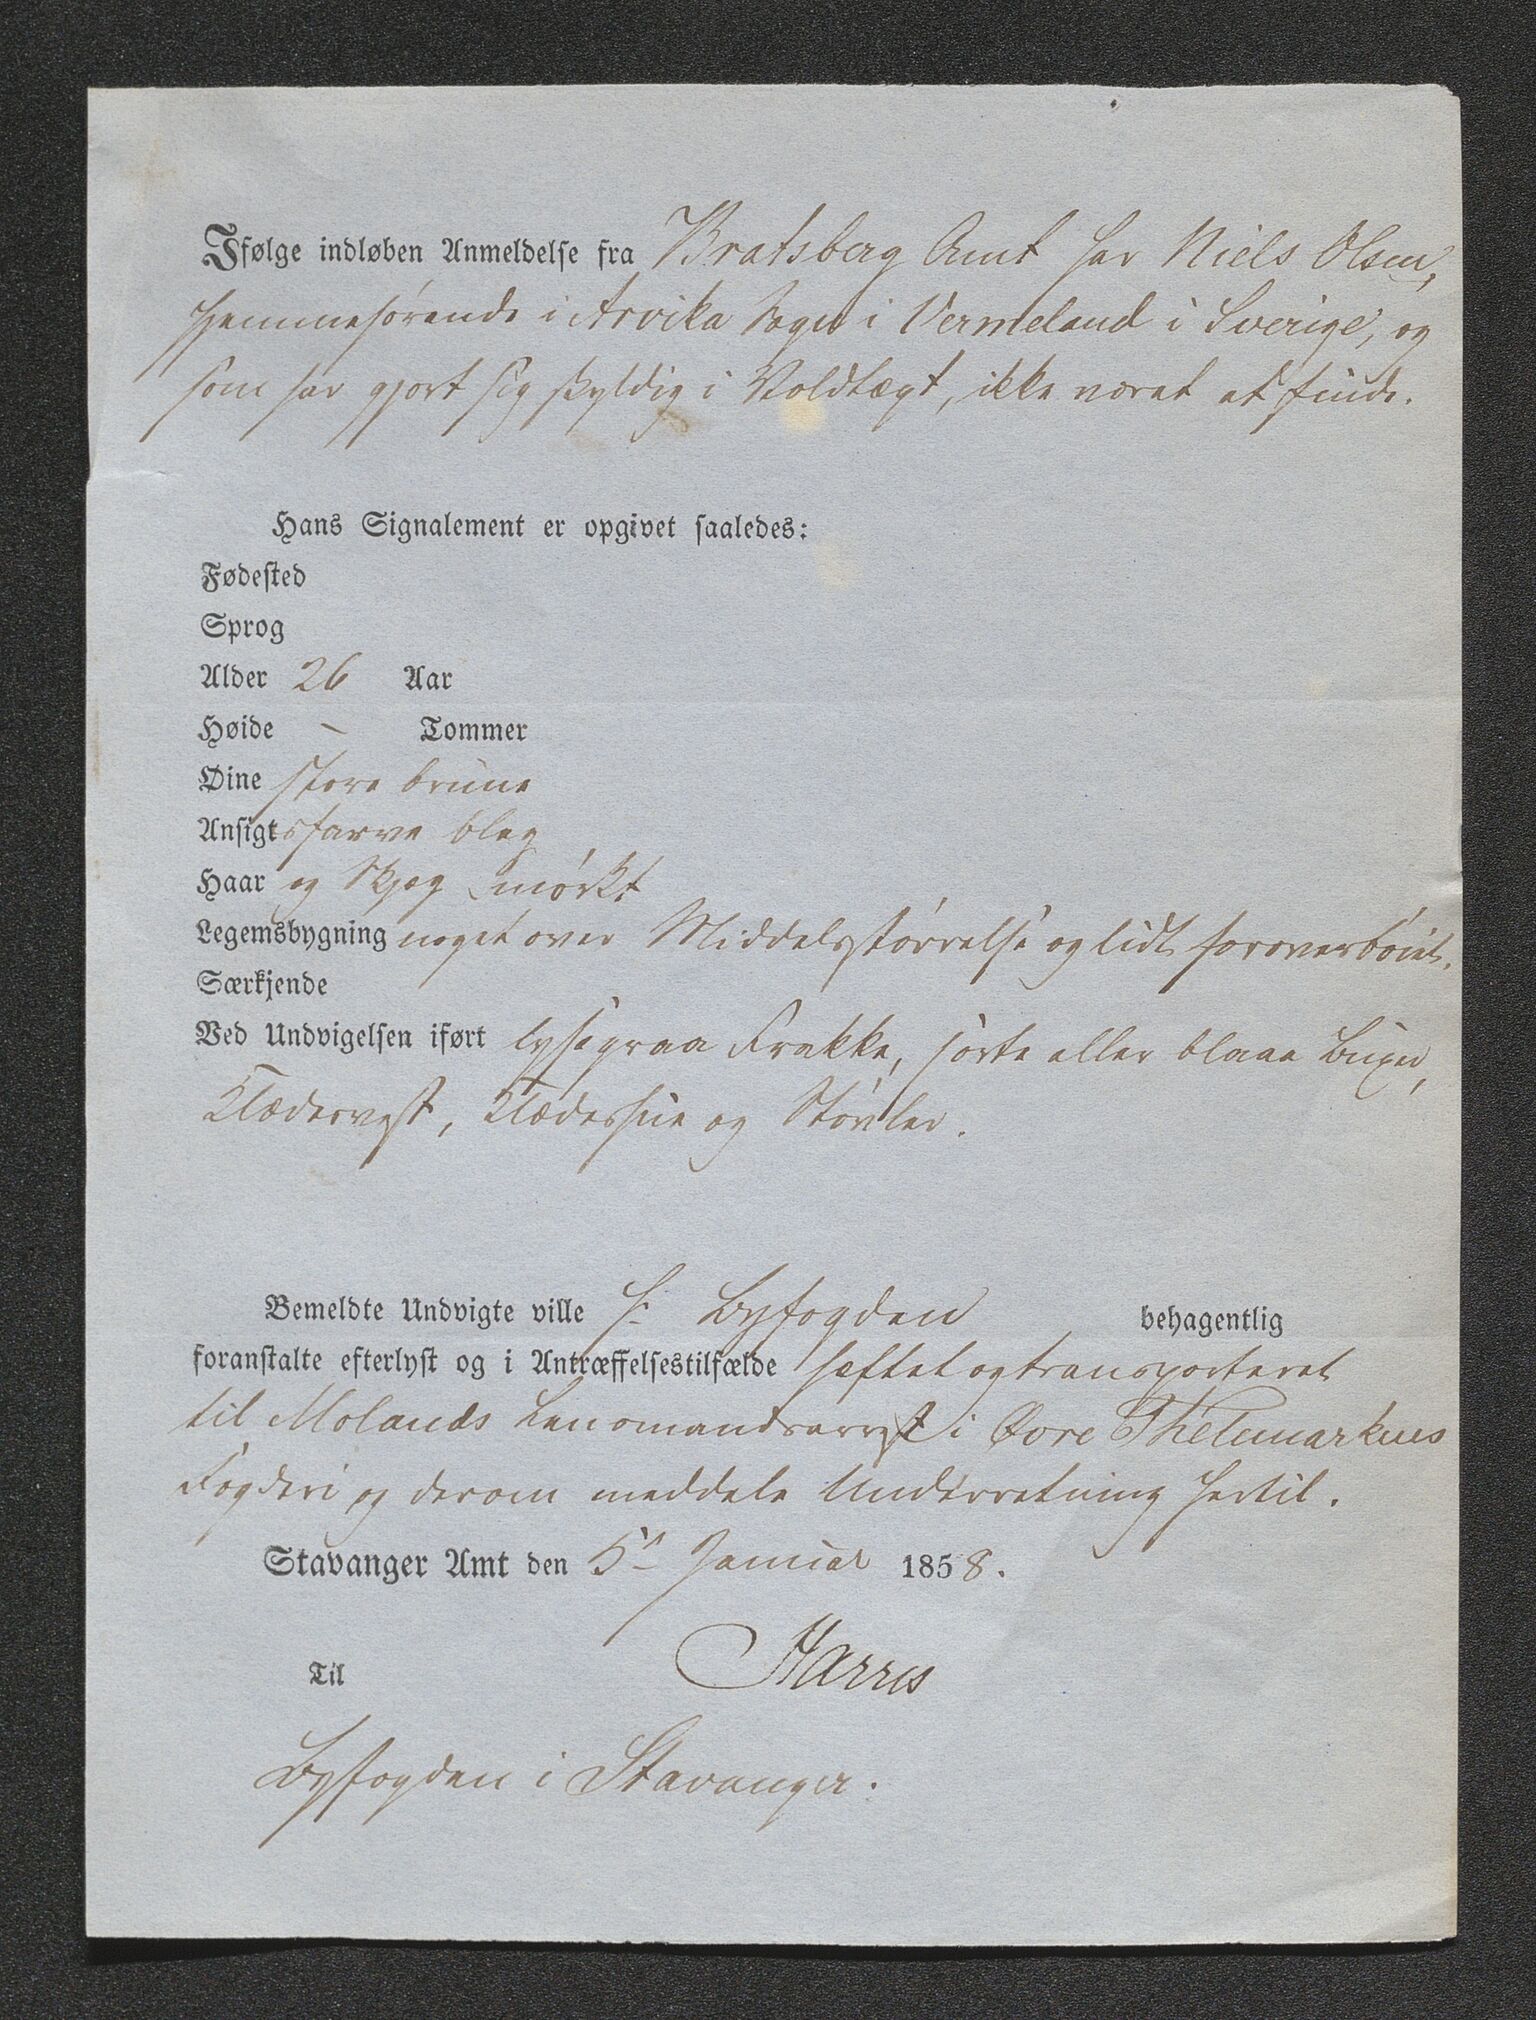 Ifølge indløben Anmeldelse fra Bratsberg Amt har Niels Olsen,
hjemmehørende i Arvika Sogn i Vermeland i Sverige, og
som har gjort sig skyldig i Voldtægt, ikke været at finde.
Hans Signalement er opgivet saaledes:
Fødested
Sprog
Alder 26 Aar
Høide - Tommer
Øine store brune
Ansigtsfarve bleg
Haar og Skjæg mørkt
Legemsbygning noget over Middelsstørrelse og lidt foroverbøiet.
Særkjende
Ved Undvigelsen iført lysegraa Frakke, sorte eller blaae Buxer,
Klædesvest, Klædeshue og Støvler.
Bemeldte Undvigte ville H. Byfogden behagentlig
foranstalte efterlyst og i Antræffelsestilfælde hæftet og transporteret
til Molands Lensmandsarrest i Øvre Thelemarkens
Fogderi og derom meddele Underretning hertil.
Stavanger Amt den 5te Januar 1858.
Harris
Til
Byfogden i Stavanger.